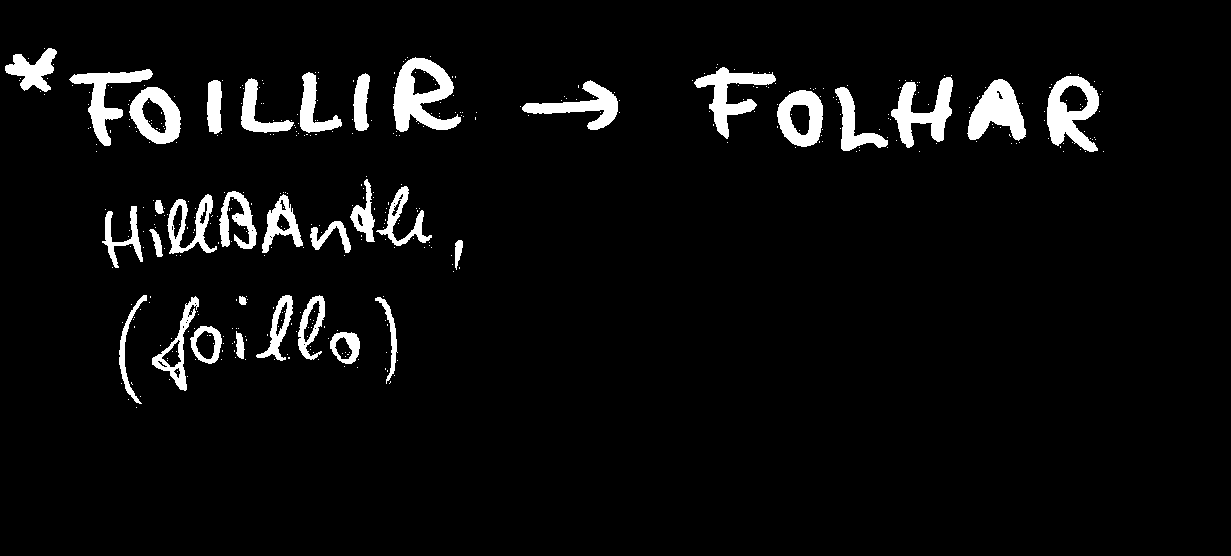 *FOILLIR → FOLHAR
HillBAndh,
(foillo)